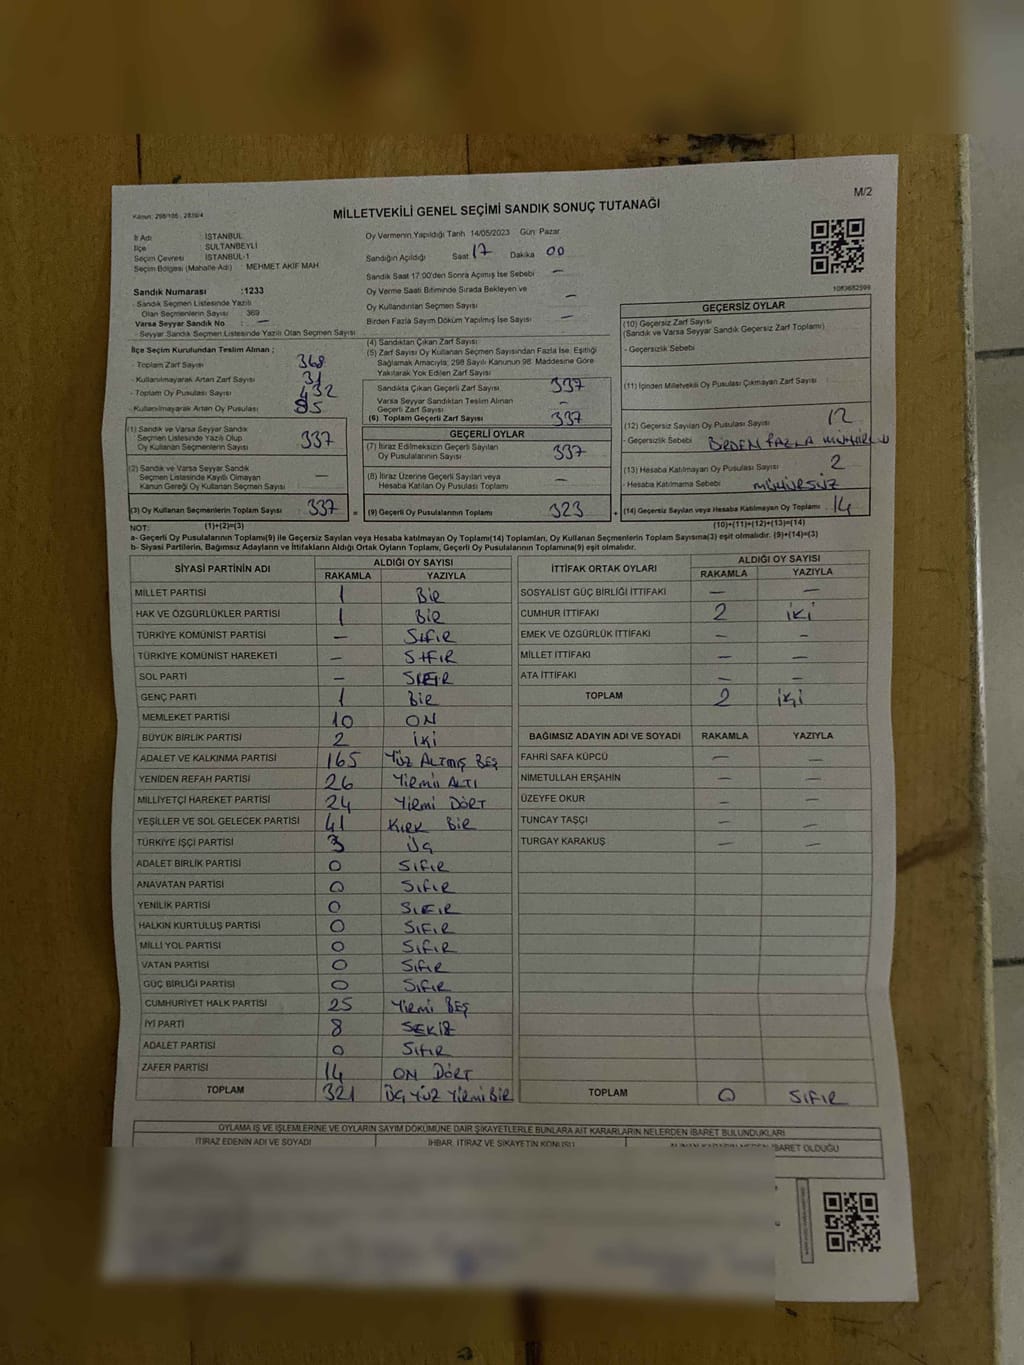 M/2
Kanun: 298/105 , 2839/4
MİLLETVEKİLİ GENEL SEÇİMİ SANDIK SONUÇ TUTANAĞI
İl Adı : İSTANBUL
İlçe : SULTANBEYLİ
Seçim Çevresi : İSTANBUL-1
Seçim Bölgesi (Mahalle Adı) : MEHMET AKİF MAH
Sandık Numarası :1233
- Sandık Seçmen Listesinde Yazılı
Olan Seçmenlerin Sayısı : 369
Varsa Seyyar Sandık No : —
- Seyyar Sandık Seçmen Listesinde Yazılı Olan Seçmen Sayısı
Oy Vermenin Yapıldığı Tarih 14/05/2023 Gün Pazar
Sandığın Açıldığı Saat 17 Dakika 00
Sandık Saat 17:00'den Sonra Açımış İse Sebebi —
Oy Verme Saati Bitiminde Sırada Bekleyen ve
Oy Kullandırılan Seçmen Sayısı —
Birden Fazla Sayım Döküm Yapılmış İse Sayısı —
1083682599
İlçe Seçim Kurulundan Teslim Alınan ;
- Toplam Zarf Sayısı 368
- Kullanılmayarak Artan Zarf Sayısı 31
- Toplam Oy Pusulası Sayısı 432
- Kullanılmayarak Artan Oy Pusulası 95
(1) Sandık ve Varsa Seyyar Sandık
Seçmen Listesinde Yazılı Olup
Oy Kullanan Seçmenlerin Sayısı 337
(2) Sandık ve Varsa Seyyar Sandık
Seçmen Listesinde Kayıtlı Olmayan
Kanun Gereği Oy Kullanan Seçmen Sayısı —
(3) Oy Kullanan Seçmenlerin Toplam Sayısı 337 =
(4) Sandıktan Çıkan Zarf Sayısı
(5) Zarf Sayısı Oy Kullanan Seçmen Sayısından Fazla İse; Eşitliği
Sağlamak Amacıyla; 298 Sayılı Kanunun 98. Maddesine Göre
Yakılarak Yok Edilen Zarf Sayısı
Sandıkta Çıkan Geçerli Zarf Sayısı 337
Varsa Seyyar Sandıktan Teslim Alınan
Geçerli Zarf Sayısı —
(6) Toplam Geçerli Zarf Sayısı 337
GEÇERLİ OYLAR
(7) İtiraz Edilmeksizin Geçerli Sayılan
Oy Pusulalarının Sayısı 337
(8) İtiraz Üzerine Geçerli Sayılan veya
Hesaba Katılan Oy Pusulası Toplamı —
(9) Geçerli Oy Pusulalarının Toplamı 323 +
GEÇERSİZ OYLAR
(10) Geçersiz Zarf Sayısı
(Sandık ve Varsa Seyyar Sandık Geçersiz Zarf Toplamı)
- Geçersizlik Sebebi
(11) İçinden Milletvekili Oy Pusulası Çıkmayan Zarf Sayısı
(12) Geçersiz Sayılan Oy Pusulası Sayısı 12
- Geçersizlik Sebebi BİRDEN FAZLA MÜHÜRLÜ
(13) Hesaba Katılmayan Oy Pusulası Sayısı 2
- Hesaba Katılmama Sebebi MÜHÜRSÜZ
(14) Geçersiz Sayılan veya Hesaba Katılmayan Oy Toplamı 14
NOT: (1)+(2)=(3) (10)+(11)+(12)+(13)=(14)
a- Geçerli Oy Pusulalarının Toplamı(9) ile Geçersiz Sayılan veya Hesaba katılmayan Oy Toplamı(14) Toplamları, Oy Kullanan Seçmenlerin Toplam Sayısına(3) eşit olmalıdır. (9)+(14)=(3)
b- Siyasi Partilerin, Bağımsız Adayların ve İttifakların Aldığı Ortak Oyların Toplamı, Geçerli Oy Pusulalarının Toplamına(9) eşit olmalıdır.
SİYASİ PARTİNİN ADI ALDIĞI OY SAYISI
RAKAMLA YAZIYLA
MİLLET PARTİSİ 1 BİR
HAK VE ÖZGÜRLÜKLER PARTİSİ 1 BİR
TÜRKİYE KOMÜNİST PARTİSİ — SIFIR
TÜRKİYE KOMÜNİST HAREKETİ — SIFIR
SOL PARTİ — SIFIR
GENÇ PARTİ 1 BİR
MEMLEKET PARTİSİ 10 ON
BÜYÜK BİRLİK PARTİSİ 2 İKİ
ADALET VE KALKINMA PARTİSİ 165 YÜZ ALTMIŞ BEŞ
YENİDEN REFAH PARTİSİ 26 YİRMİ ALTI
MİLLİYETÇİ HAREKET PARTİSİ 24 YİRMİ DÖRT
YEŞİLLER VE SOL GELECEK PARTİSİ 41 KIRK BİR
TÜRKİYE İŞÇİ PARTİSİ 3 ÜÇ
ADALET BİRLİK PARTİSİ 0 SIFIR
ANAVATAN PARTİSİ 0 SIFIR
YENİLİK PARTİSİ 0 SIFIR
HALKIN KURTULUŞ PARTİSİ 0 SIFIR
MİLLİ YOL PARTİSİ 0 SIFIR
VATAN PARTİSİ 0 SIFIR
GÜÇ BİRLİĞİ PARTİSİ 0 SIFIR
CUMHURİYET HALK PARTİSİ 25 YİRMİ BEŞ
İYİ PARTİ 8 SEKİZ
ADALET PARTİSİ 0 SIFIR
ZAFER PARTİSİ 14 ON DÖRT
TOPLAM 321 ÜÇ YÜZ YİRMİ BİR
İTTİFAK ORTAK OYLARI ALDIĞI OY SAYISI
RAKAMLA YAZIYLA
SOSYALİST GÜÇ BİRLİĞİ İTTİFAKI — —
CUMHUR İTTİFAKI 2 İKİ
EMEK VE ÖZGÜRLÜK İTTİFAKI — —
MİLLET İTTİFAKI — —
ATA İTTİFAKI — —
TOPLAM 2 İKİ
BAĞIMSIZ ADAYIN ADI VE SOYADI RAKAMLA YAZIYLA
FAHRİ SAFA KÜPCÜ — —
NİMETULLAH ERŞAHİN — —
ÜZEYFE OKUR — —
TUNCAY TAŞÇI — —
TURGAY KARAKUŞ — —
TOPLAM 0 SIFIR
OYLAMA İŞ VE İŞLEMLERİNE VE OYLARIN SAYIM DÖKÜMÜNE DAİR ŞİKAYETLERLE BUNLARA AİT KARARLARIN NELERDEN İBARET BULUNDUKLARI
İTİRAZ EDENİN ADI VE SOYADI İHBAR, İTİRAZ VE ŞİKAYETİN KONUSU İBARET OLDUĞU